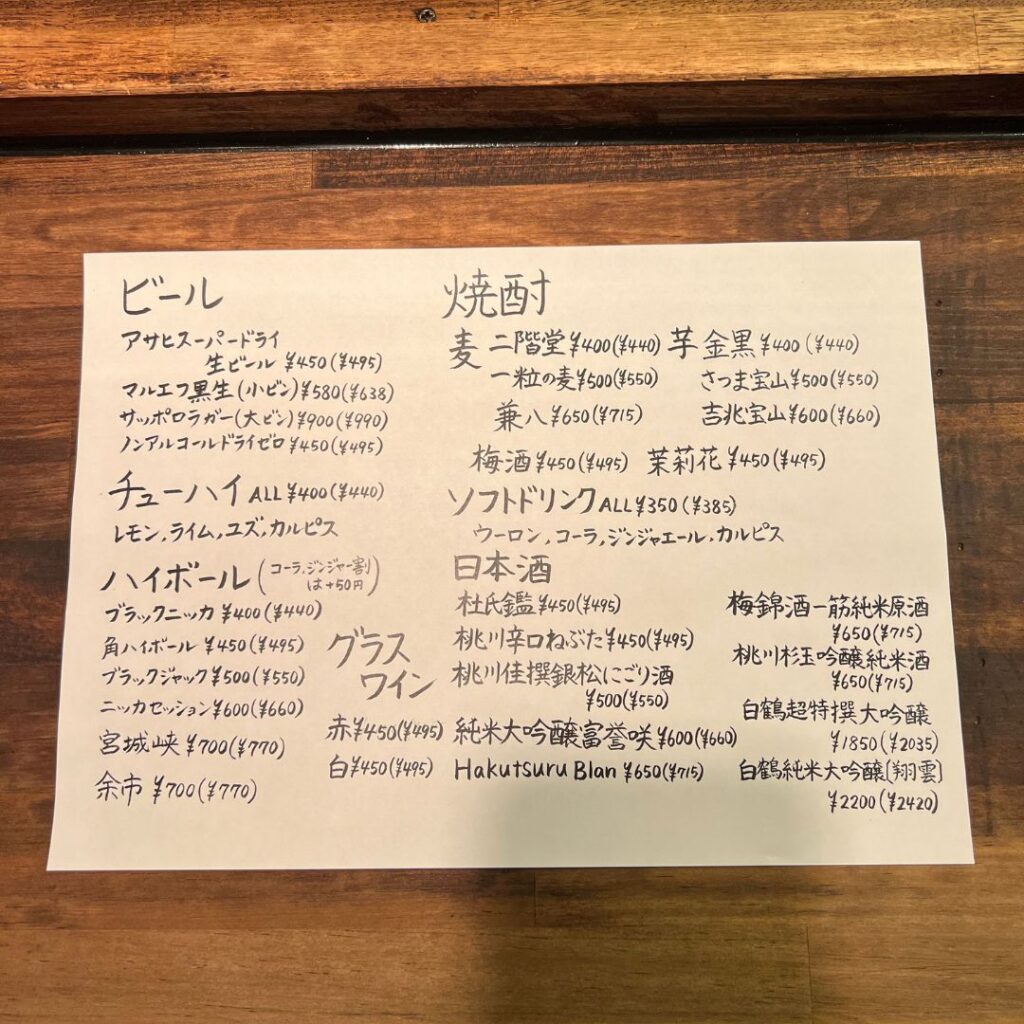 ビール
アサヒスーパードライ
生ビール ¥450(¥495)
マルエフ黒生(小ビン)¥580(¥638)
サッポロラガー(大ビン)¥900(¥990)
ノンアルコールドライゼロ ¥450(¥495)
チューハイ ALL ¥400(¥440)
レモン,ライム,ユズ,カルピス
ハイボール(コーラ,ジンジャー割
は+50円)
ブラックニッカ ¥400(¥440)
角ハイボール ¥450(¥495)
ブラックジャック ¥500(¥550)
ニッカセッション ¥600(¥660)
宮城峡 ¥700(¥770)
余市 ¥700(¥770)
グラス
ワイン
赤 ¥450(¥495)
白 ¥450(¥495)
焼酎
麦 二階堂 ¥400(¥440)
一粒の麦 ¥500(¥550)
兼八 ¥650(¥715)
芋 金黒 ¥400(¥440)
さつま宝山 ¥500(¥550)
吉兆宝山 ¥600(¥660)
梅酒 ¥450(¥495) 茉莉花 ¥450(¥495)
ソフトドリンク ALL ¥350(¥385)
ウーロン,コーラ,ジンジャエール,カルピス
日本酒
杜氏鑑 ¥450(¥495)
桃川辛口ねぶた ¥450(¥495)
桃川佳撰銀松にごり酒
¥500(¥550)
純米大吟醸富誉咲 ¥600(¥660)
Hakutsuru Blan ¥650(¥715)
梅錦酒一筋純米原酒
¥650(¥715)
桃川杉玉吟醸純米酒
¥650(¥715)
白鶴超特撰大吟醸
¥1850(¥2035)
白鶴純米大吟醸[翔雲]
¥2200(¥2420)